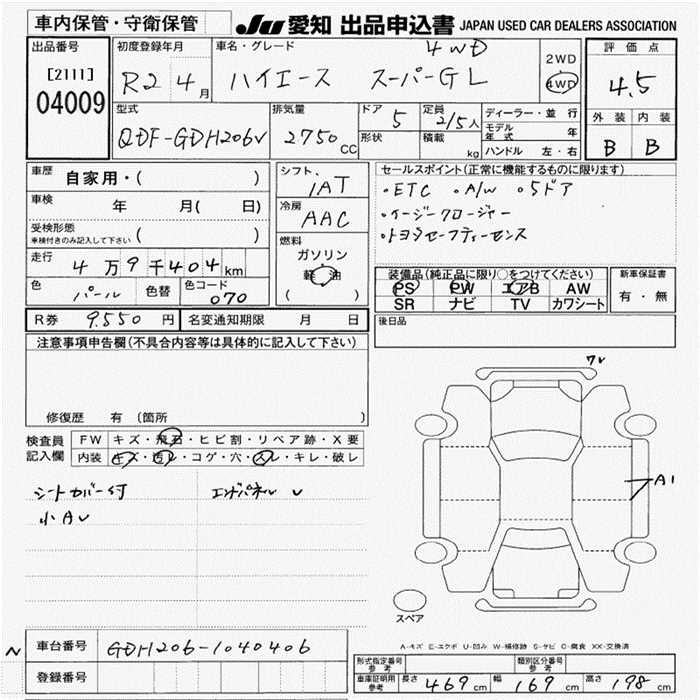 車内保管・守衛保管
JU 愛知 出品申込書 JAPAN USED CAR DEALERS ASSOCIATION
出品番号
[2111]
04009
初度登録年月
R2 4月
車名・グレード
4WD
ハイエース スーパーGL
2WD
4WD
評価点
4.5
外装 内装
B B
型式
QDF-GDH206V
排気量
2750CC
ドア 5
形状
定員 2/5人
積載 kg
ディーラー・並行
モデル年式 年
ハンドル 左・右
車歴 自家用・( )
車検 年 月( 日)
受検形態
車検付きのみ記入して下さい ( )
走行 4万9千404km
色 パール 色替 色コード 070
シフト
IAT
冷房
AAC
燃料
ガソリン
(軽・油)
セールスポイント(正常に機能するものに限ります)
・ETC ・A/W ・5ドア
・イージークロージャー
・トヨタセーフティーセンス
装備品(純正品に限り○をつけてください)
PS PW エアB AW
SR ナビ TV カワシート
新車保証書
有・無
R券 9.550円 名変通知期限 月 日
後日品
注意事項申告欄(不具合内容等は具体的に記入して下さい)
修復歴 有(箇所 )
検査員記入欄
FW キズ・飛石・ヒビ割・リペア跡・X要
内装 キズ・汚レ・コゲ・穴・スレ・キレ・破レ
シートカバー付 エンドパネル U
小AU
7U
A1
スペア
A-キズ E-エクボ U-凹み W-補修跡 S-サビ C-腐食 XX-交換済
車台番号 GDH206-1040406
登録番号
形式指定番号参考 類別区分番号参考
車庫証明用参考 長さ 469cm 幅 169cm 高さ 198cm